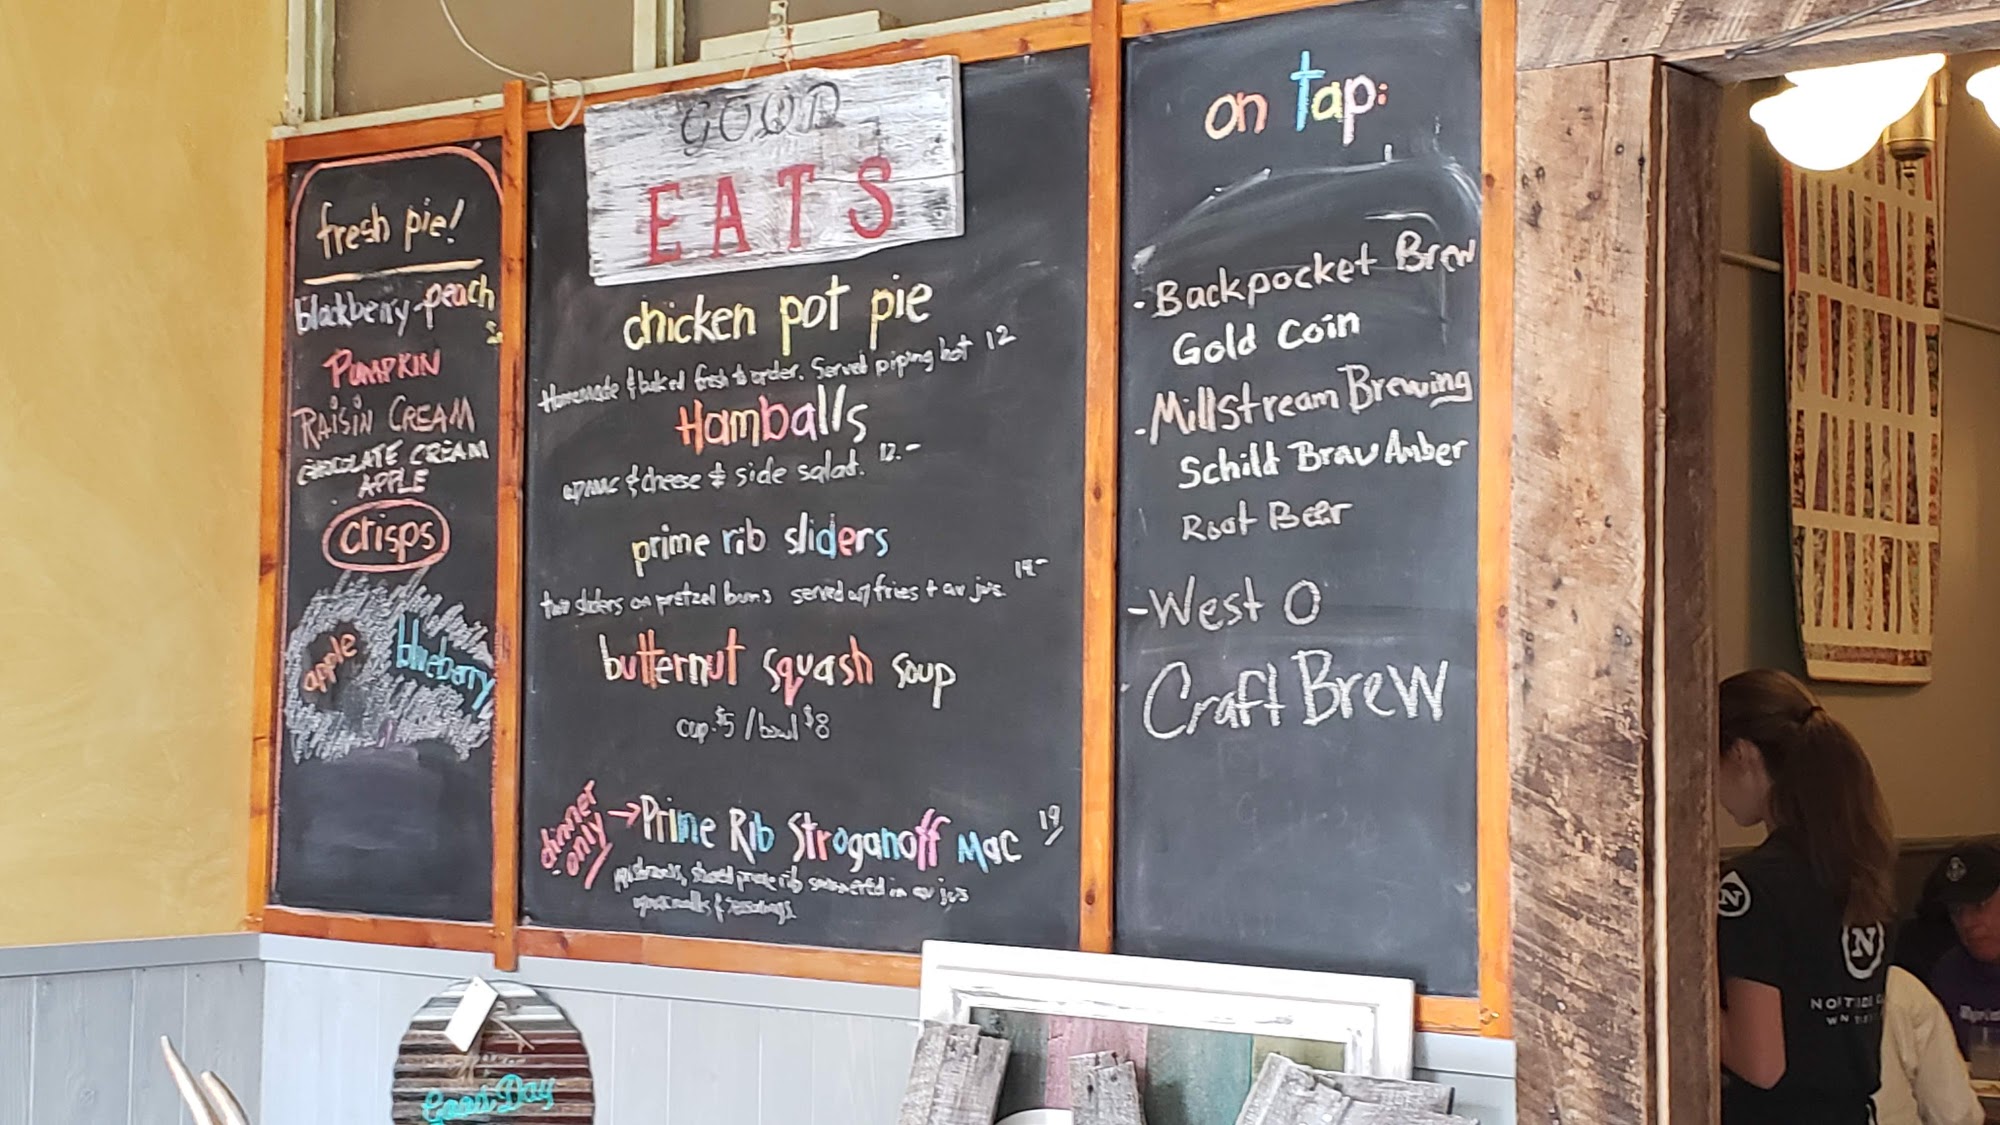 fresh pie!
blackberry-peach
PUMPKIN
RAISIN CREAM
CHOCOLATE CREAM
APPLE
crisps
apple
blueberry
GOOD
EATS
chicken pot pie
Homemade & baked fresh to order. Served piping hot 12
Hamballs
w/ mac & cheese & side salad. 12.-
prime rib sliders
two sliders on pretzel buns served w/ fries + au jus.
butternut squash soup
cup $5 / bowl $8
dinner only → Prime Rib Stroganoff Mac 19
mushrooms, shaved prime rib simmered in au jus
& seasonings.
on tap:
- Backpocket Brew
Gold Coin
- Millstream Brewing
Schild Brau Amber
Root Beer
- West O
Craft Brew
Good Day
N
N